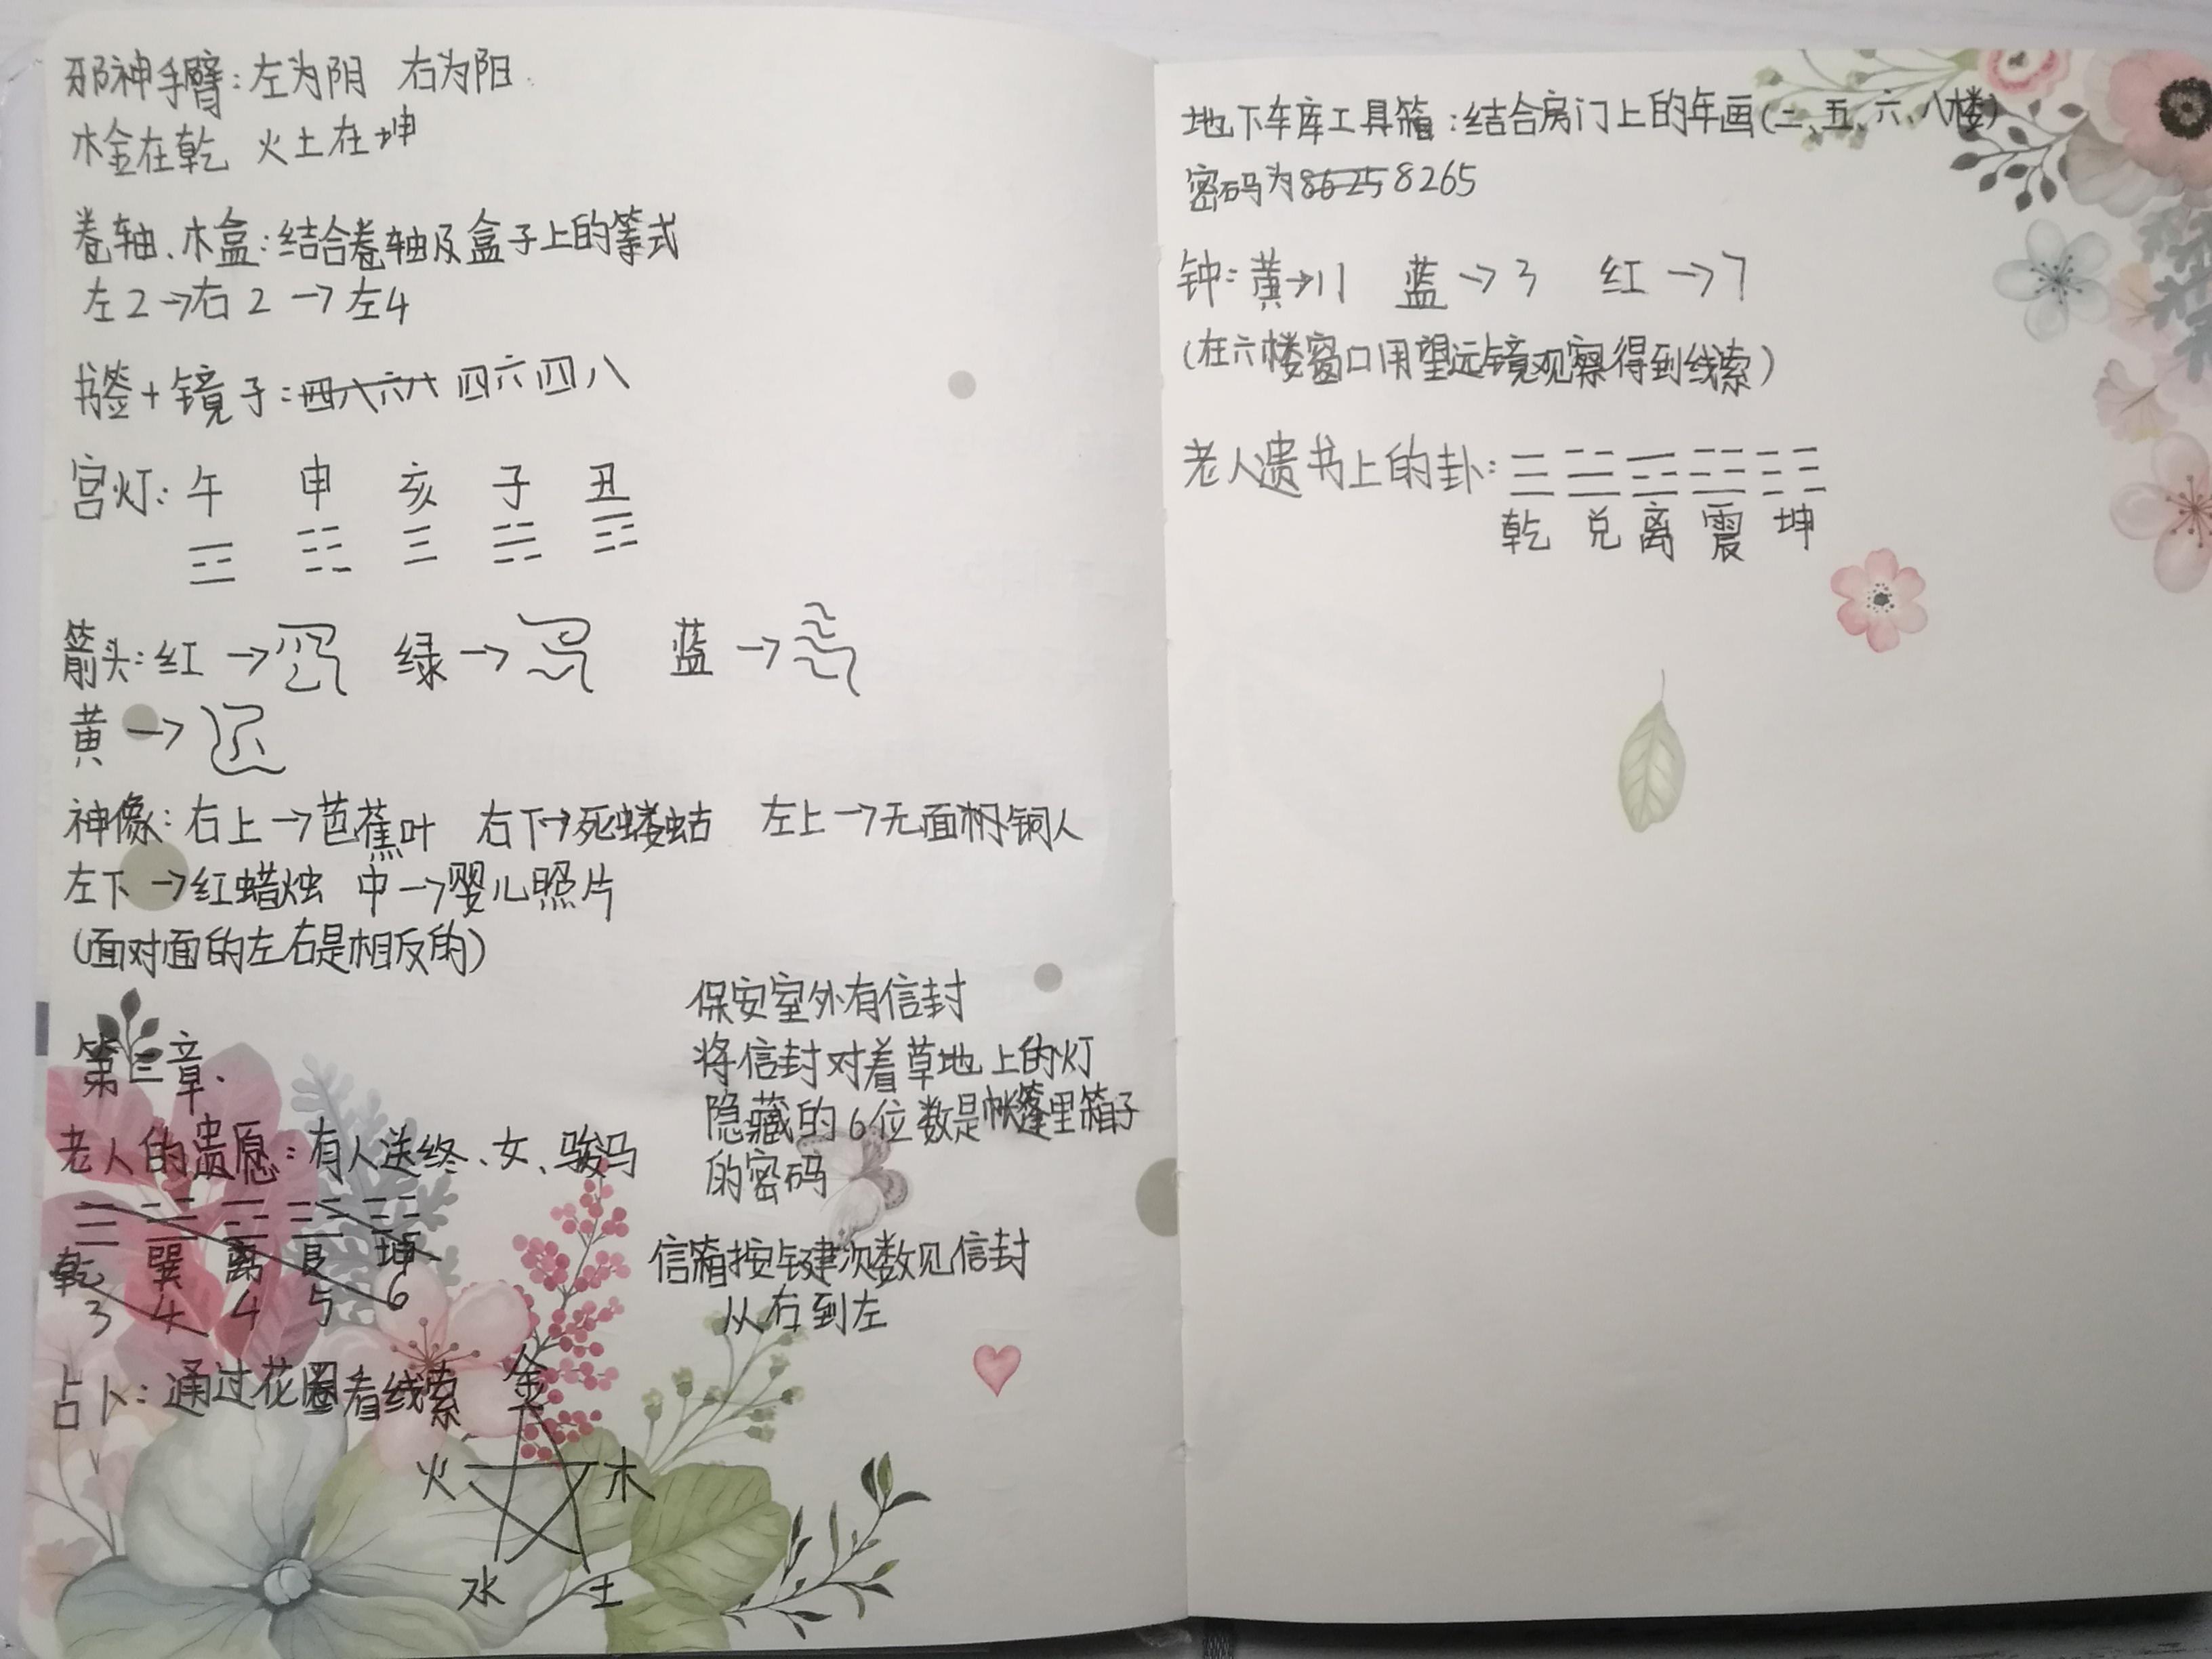 邪神手臂:左为阴 右为阳
木金在乾 火土在坤
卷轴、木盒:结合卷轴及盒子上的等式
左2→右2→左4
书签+镜子:四八六八 四六四八
宫灯:午 申 亥 子 丑
箭头:红→ 绿→ 蓝→
黄→
神像:右上→芭蕉叶 右下→死蝼蛄 左上→无面铜人
左下→红蜡烛 中→婴儿照片
(面对面的左右是相反的)
第三章.
老人的遗愿:有人送终、女、骏马
☰ ☴ ☲ ☶ ☷
乾 巽 离 艮 坤
3 4 4 5 6
占卜:通过花圈看线索
金
火 木
水 土
保安室外有信封
将信封对着草地上的灯
隐藏的6位数是帐篷里箱子
的密码
信箱按键次数见信封
从右到左
地下车库工具箱:结合房门上的年画(二、五、六、八楼)
密码为8625 8265
钟:黄→11 蓝→3 红→7
(在六楼窗口用望远镜观察得到线索)
老人遗书上的卦:☰ ☱ ☲ ☳ ☷
乾 兑 离 震 坤